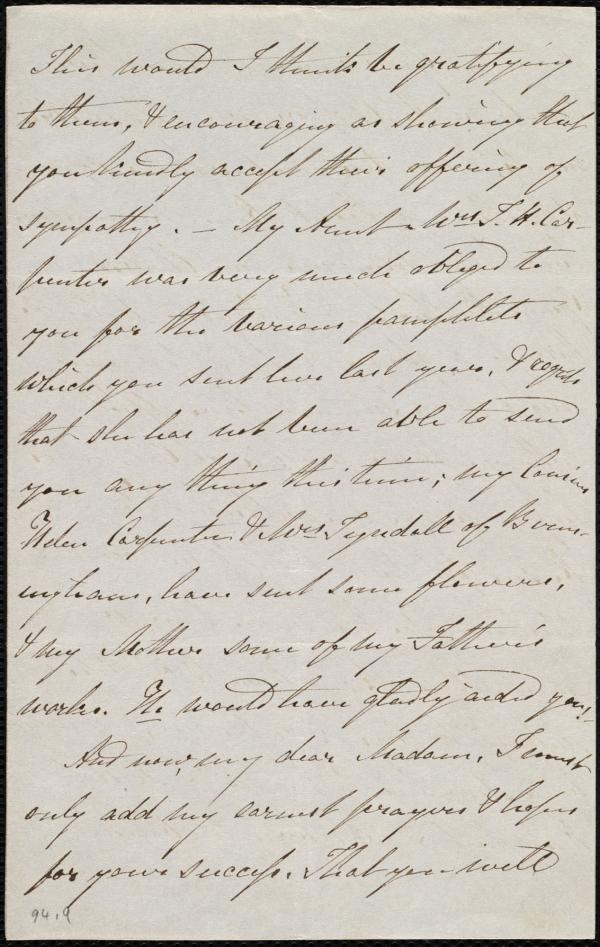 This would I think be gratifying
to them, & encouraging as showing that
you kindly accept their offering of
sympathy. – My Aunt Mrs T. H. Car-
penter was very much obliged to
you for the various pamphlets
which you sent her last year, & regrets
that she has not been able to send
you any thing this time; my Cousins
Helen Carpenter & Mrs Tyndall of Birm-
ingham, have sent some flowers,
& my Mother some of my Father's
works. He would have gladly aided you!–
And now, my dear Madam, I must
only add my earnest prayers & hopes
for your success. That you will
94.9